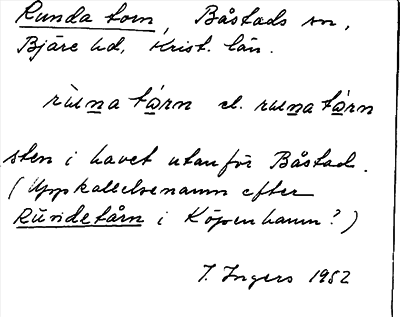 Runda torn, Båstads sn,
Bjäre hd, Krist. län.
rùṉa tå̱rn el. ruṉa tå̱rn
sten i havet utanför Båstad.
(Uppkallelsenamn efter
Rundetårn i Köpenhamn?)
I. Ingers 1952